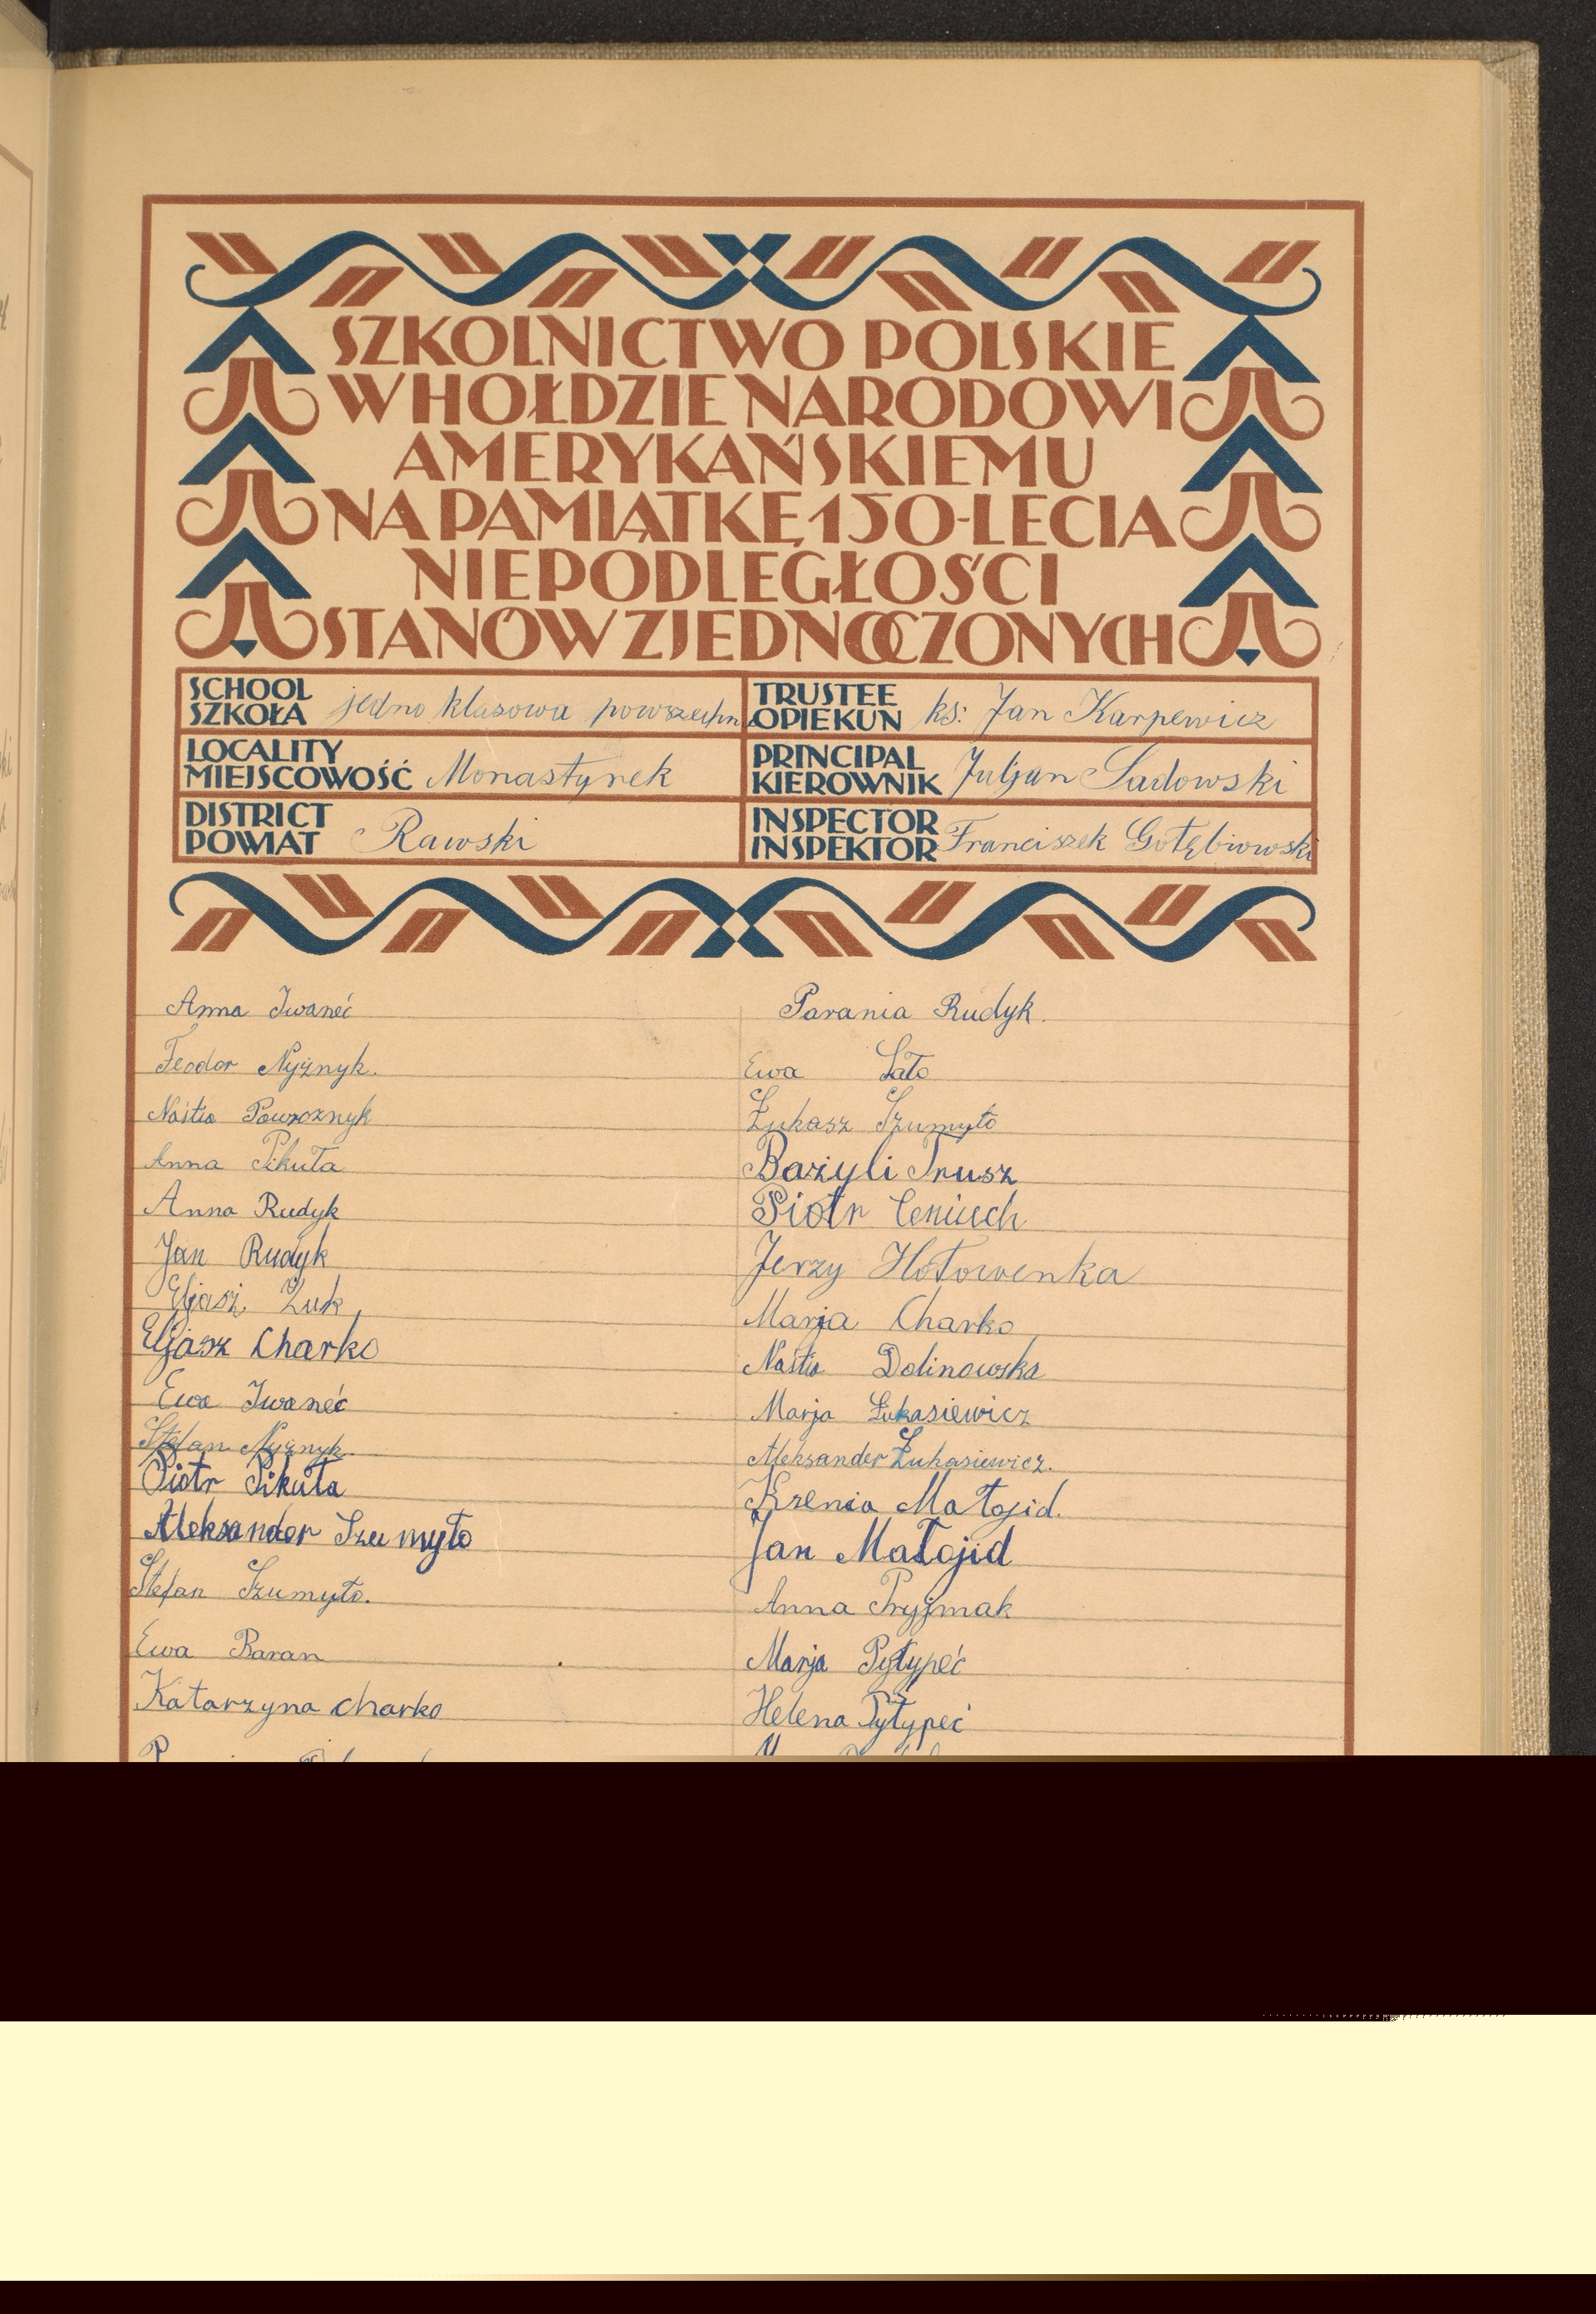 SZKOLNICTWO POLSKIE
W HOŁDZIE NARODOWI
AMERYKAŃSKIEMU
NA PAMIĄTKĘ 150-LECIA
NIEPODLEGŁOŚCI
STANÓW ZJEDNOCZONYCH
SCHOOL
SZKOŁA jedno klasowa powszechna
LOCALITY
MIEJSCOWOŚĆ Monastyrek
DISTRICT
POWIAT Rawski
TRUSTEE
OPIEKUN ks: Jan Karpewicz
PRINCIPAL
KIEROWNIK Juljan Sadowski
INSPECTOR
INSPEKTOR Franciszek Gołębiowski
Anna Iwaneć
Feodor Nyżnyk.
Nastia Powroznyk
Anna Pikuła
Anna Rudyk
Jan Rudyk
Eljasz Żuk
Eljasz Charko
Ewa Iwaneć
Stefan Nyżnyk.
Piotr Pikuła
Aleksander Szumyło
Stefan Szumyło.
Ewa Baran
Katarzyna Charko
Parania Rudyk.
Ewa Łato
Łukasz Szumyło
Bazyli Trusz
Piotr Ceniuch
Jerzy Hołowenka
Marja Charko
Nastia Dolinowska
Marja Łukasiewicz
Aleksander Łukasiewicz.
Ksenia Małojid.
Jan Małojid
Anna Pryjmak
Marja Pyłypeć
Helena Pyłypeć